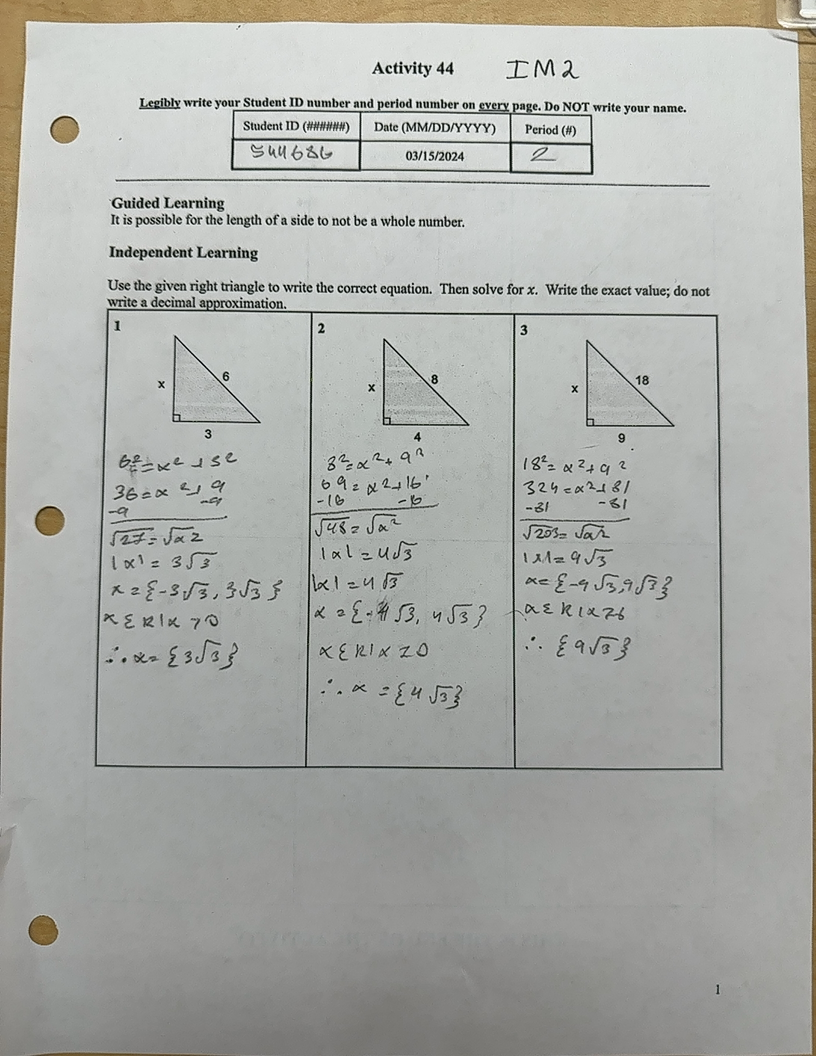 Activity 44 IM2
Legibly write your Student ID number and period number on every page. Do NOT write your name.
Student ID (######) Date (MM/DD/YYYY) Period (#)
544686 03/15/2024 2
Guided Learning
It is possible for the length of a side to not be a whole number.
Independent Learning
Use the given right triangle to write the correct equation. Then solve for x. Write the exact value; do not
write a decimal approximation.
1
x
6
3
6² = x² + 3²
36 = x² + 9
-9 -9
√27 = √x2
|x| = 3√3
x = {-3√3, 3√3}
x ∈ R | x > 0
∴ x = {3√3}
2
x
8
4
8² = x² + 9²
69 = x² + 16
-16 -16
√48 = √x²
|x| = 4√3
|x| = 4√3
x = {-4√3, 4√3}
x ∈ R | x > 0
∴ x = {4√3}
3
x
18
9
18² = x² + 9²
324 = x² + 81
-81 -81
√203 = √x²
|x| = 9√3
x = {-9√3, 9√3}
x ∈ R | x >
∴ {9√3}
1